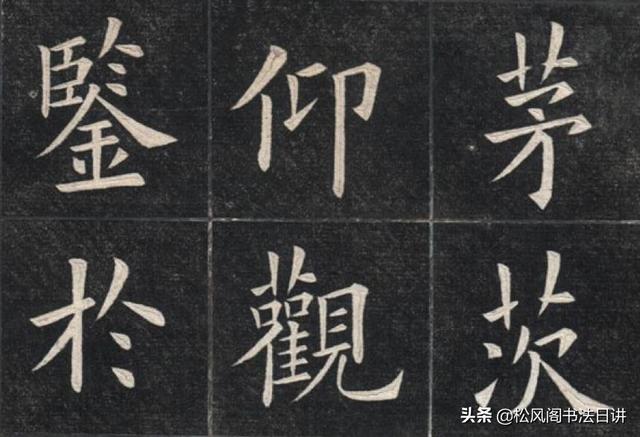 茅茨
仰觀
鑒於
头条 @松风阁书法日讲